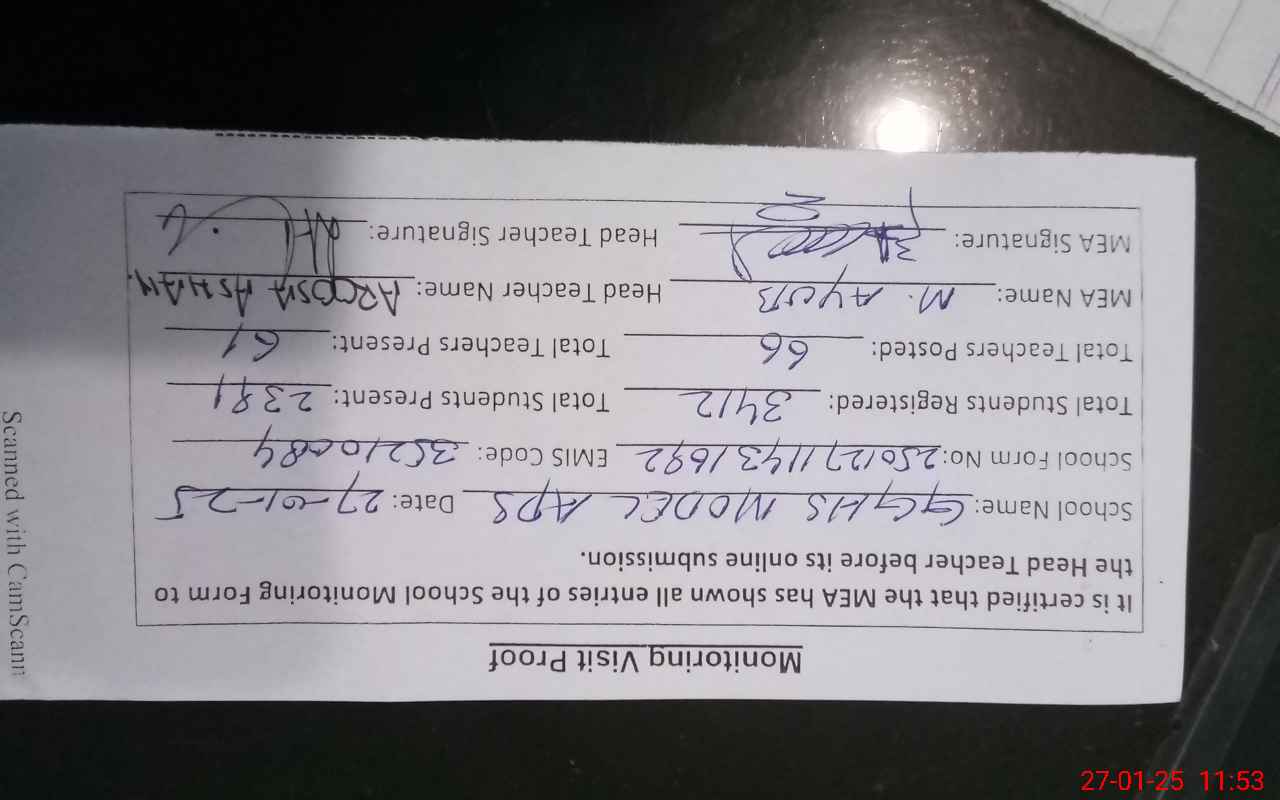 Monitoring Visit Proof
It is certified that the MEA has shown all entries of the School Monitoring Form to
the Head Teacher before its online submission.
School Name: GGHS MODEL APS Date: 27-01-25
School Form No: 25012711431692 EMIS Code: 35210084
Total Students Registered: 3412 Total Students Present: 2381
Total Teachers Posted: 66 Total Teachers Present: 61
MEA Name: M. AYUB Head Teacher Name: AROOSA ASHAM
MEA Signature: Head Teacher Signature:
Scanned with CamScann
27-01-25 11:53